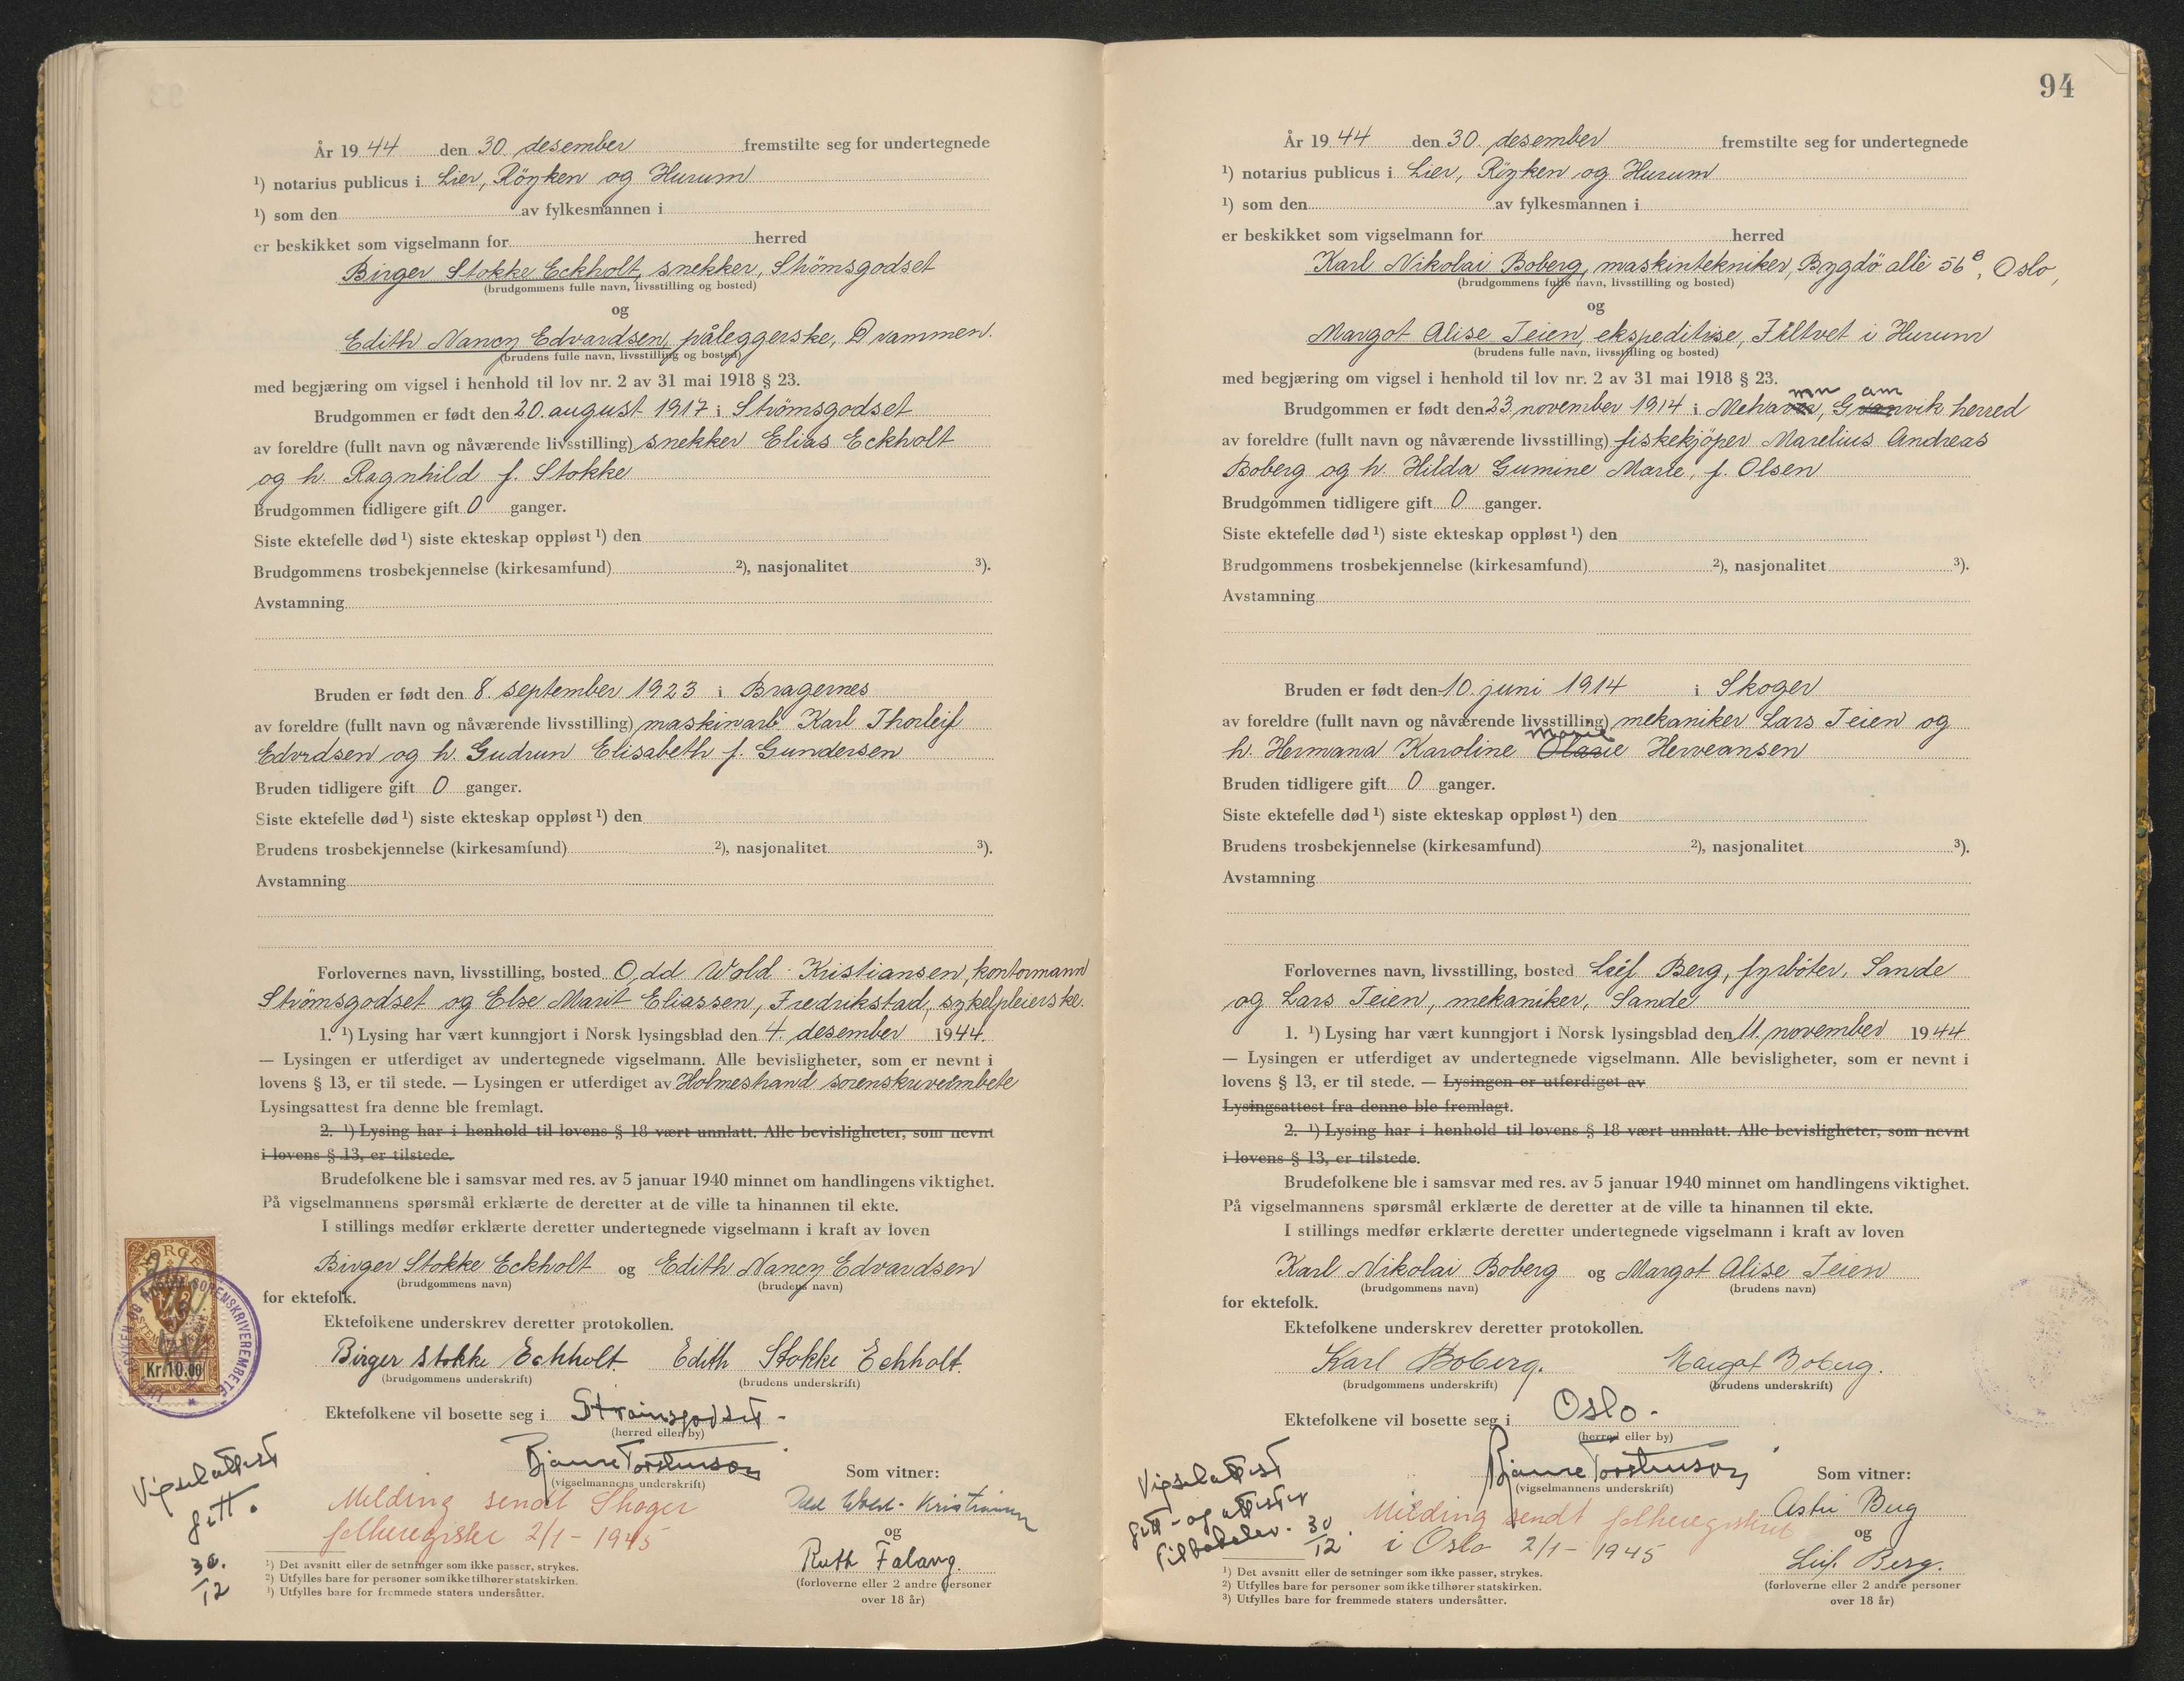 År 1944 den 30. desember fremstilte seg for undertegnede
¹) notarius publicus i Lier, Röyken og Hurum
¹) som den av fylkesmannen i
er beskikket som vigselmann for herred
Birger Stokke Eckholt, snekker, Strömsgodset
(brudgommens fulle navn, livsstilling og bosted)
og
Edith Nancy Edvardsen, påleggerske, Drammen.
(brudens fulle navn, livsstilling og bosted)
med begjæring om vigsel i henhold til lov nr. 2 av 31 mai 1918 § 23.
Brudgommen er født den 20. august 1917 i Strömsgodset
av foreldre (fullt navn og nåværende livsstilling) snekker Elias Eckholt
og h. Ragnhild f. Stokke
Brudgommen tidligere gift 0 ganger.
Siste ektefelle død ¹) siste ekteskap oppløst ¹) den
Brudgommens trosbekjennelse (kirkesamfund) ²), nasjonalitet ³).
Avstamning
Bruden er født den 8. september 1923 i Bragernes
av foreldre (fullt navn og nåværende livsstilling) maskinarb. Karl Thorleif
Edvrdsen og h. Gudrun Elisabeth f. Gundersen
Bruden tidligere gift 0 ganger.
Siste ektefelle død ¹) siste ekteskap oppløst ¹) den
Brudens trosbekjennelse (kirkesamfund) ²), nasjonalitet ³).
Avstamning
Forlovernes navn, livsstilling, bosted Odd Wold-Kristiansen, kontormann
Strömsgodset og Else Marit Eliassen, Fredrikstad, sykepleierske.
1. ¹) Lysing har vært kunngjort i Norsk lysingsblad den 4. desember 1944.
— Lysingen er utferdiget av undertegnede vigselmann. Alle bevisligheter, som er nevnt i
lovens § 13, er til stede. — Lysingen er utferdiget av Holmestrand sorenskriverembete
Lysingsattest fra denne ble fremlagt.
2. ¹) Lysing har i henhold til lovens § 18 vært unnlatt. Alle bevisligheter, som nevnt
i lovens § 13, er tilstede.
Brudefolkene ble i samsvar med res. av 5 januar 1940 minnet om handlingens viktighet.
På vigselmannens spørsmål erklærte de deretter at de ville ta hinannen til ekte.
I stillings medfør erklærte deretter undertegnede vigselmann i kraft av loven
Birger Stokke Eckholt og Edith Nancy Edvardsen
(brudgommens navn) (brudens navn)
for ektefolk.
Ektefolkene underskrev deretter protokollen.
Birger Stokke Eckholt Edith Stokke Eckholt.
(brudgommens underskrift) (brudens underskrift)
Kr. 10.00
Ektefolkene vil bosette seg i Strömsgodset -
(herred eller by)
Bjarne Torstenson
(vigselmannens underskrift)
Som vitner:
Vigselattest
gitt.
30.
12
Melding sendt Skoger
folkeregister 2/1 - 1945
Odd Wold-Kristiansen
og
Ruth Falang.
(forloverne eller 2 andre personer
over 18 år)
¹) Det avsnitt eller de setninger som ikke passer, strykes.
²) Utfylles bare for personer som ikke tilhører statskirken.
³) Utfylles bare for fremmede staters undersåtter.
94
År 1944 den 30. desember fremstilte seg for undertegnede
¹) notarius publicus i Lier, Röyken og Hurum
¹) som den av fylkesmannen i
er beskikket som vigselmann for herred
Karl Nikolai Boberg, maskintekniker, Bygdö allè 56 B, Oslo,
(brudgommens fulle navn, livsstilling og bosted)
og
Margot Alise Teien, ekspeditrise, Filtvet i Hurum
(brudens fulle navn, livsstilling og bosted)
med begjæring om vigsel i henhold til lov nr. 2 av 31 mai 1918 § 23.
mn am
Brudgommen er født den 23. november 1914 i Mehavn, Gamvik herred
av foreldre (fullt navn og nåværende livsstilling) fiskekjöper Marelius Andreas
Boberg og h. Hilda Gumine Marie, f. Olsen
Brudgommen tidligere gift 0 ganger.
Siste ektefelle død ¹) siste ekteskap oppløst ¹) den
Brudgommens trosbekjennelse (kirkesamfund) ²), nasjonalitet ³).
Avstamning
Bruden er født den 10. juni 1914 i Skoger
av foreldre (fullt navn og nåværende livsstilling) mekaniker Lars Teien og
Marie
h. Hermana Karoline Olasie Herveansen
Bruden tidligere gift 0 ganger.
Siste ektefelle død ¹) siste ekteskap oppløst ¹) den
Brudens trosbekjennelse (kirkesamfund) ²), nasjonalitet ³).
Avstamning
Forlovernes navn, livsstilling, bosted Leif Berg, fyrböter, Sande
og Lars Teien, mekaniker, Sande
1. ¹) Lysing har vært kunngjort i Norsk lysingsblad den 11. november 1944
— Lysingen er utferdiget av undertegnede vigselmann. Alle bevisligheter, som er nevnt i
lovens § 13, er til stede. — Lysingen er utferdiget av
Lysingsattest fra denne ble fremlagt.
2. ¹) Lysing har i henhold til lovens § 18 vært unnlatt. Alle bevisligheter, som nevnt
i lovens § 13, er tilstede.
Brudefolkene ble i samsvar med res. av 5 januar 1940 minnet om handlingens viktighet.
På vigselmannens spørsmål erklærte de deretter at de ville ta hinannen til ekte.
I stillings medfør erklærte deretter undertegnede vigselmann i kraft av loven
Karl Nikolai Boberg og Margot Alise Teien
(brudgommens navn) (brudens navn)
for ektefolk.
Ektefolkene underskrev deretter protokollen.
Karl Boberg. Margot Boberg.
(brudgommens underskrift) (brudens underskrift)
Ektefolkene vil bosette seg i Oslo -
(herred eller by)
Bjarne Torstenson
(vigselmannens underskrift)
Som vitner:
Vigselattest
gitt - og attester
tilbakelev. 30
12.
Melding sendt folkeregistret
i Oslo 2/1 - 1945
Astri Berg
og
Leif Berg.
(forloverne eller 2 andre personer
over 18 år)
¹) Det avsnitt eller de setninger som ikke passer, strykes.
²) Utfylles bare for personer som ikke tilhører statskirken.
³) Utfylles bare for fremmede staters undersåtter.